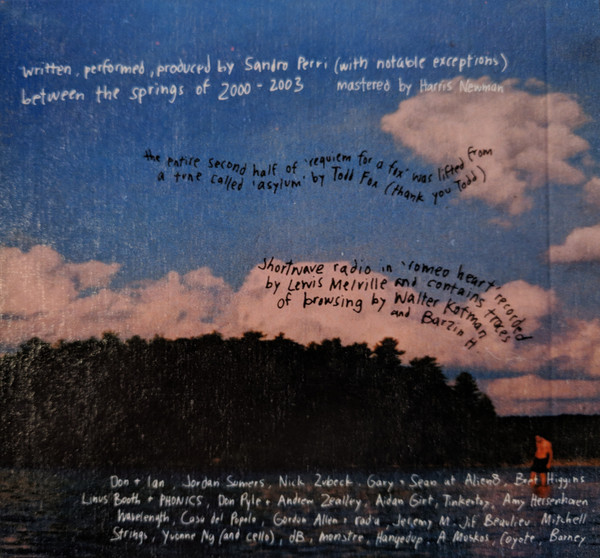 written, performed, produced by Sandro Perri (with notable exceptions)
between the springs of 2000 - 2003 mastered by Harris Newman
the entire second half of 'requiem for a fox' was lifted from
a tune called 'asylum' by Todd Fox (thank you Todd)
shortwave radio in 'romeo heart' recorded
by Lewis Melville and contains traces
of browsing by Walter Kofman
and Barzin H.
Don + Ian, Jordan Somers, Nick Zubeck, Gary + Sean at Alien8, Bret Higgins
Linus Booth + PHONICS, Don Pyle + Andrew Zealley, Aidan Girt, Tinkertoy, Amy
Wavelength, Casa del Popolo, Gordon Allen + radia, Jeremy M. Jif Beaulieu Mitchell
Strings, Yvonne Ng (and cello), dB, monstre, Hangedup, A Muskos, Coyote, Barney